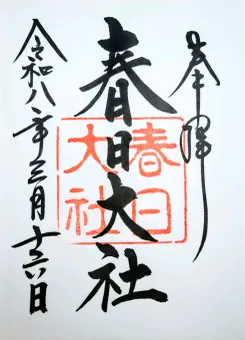 奉拝
春日大社
春日大社
令和八年三月十六日